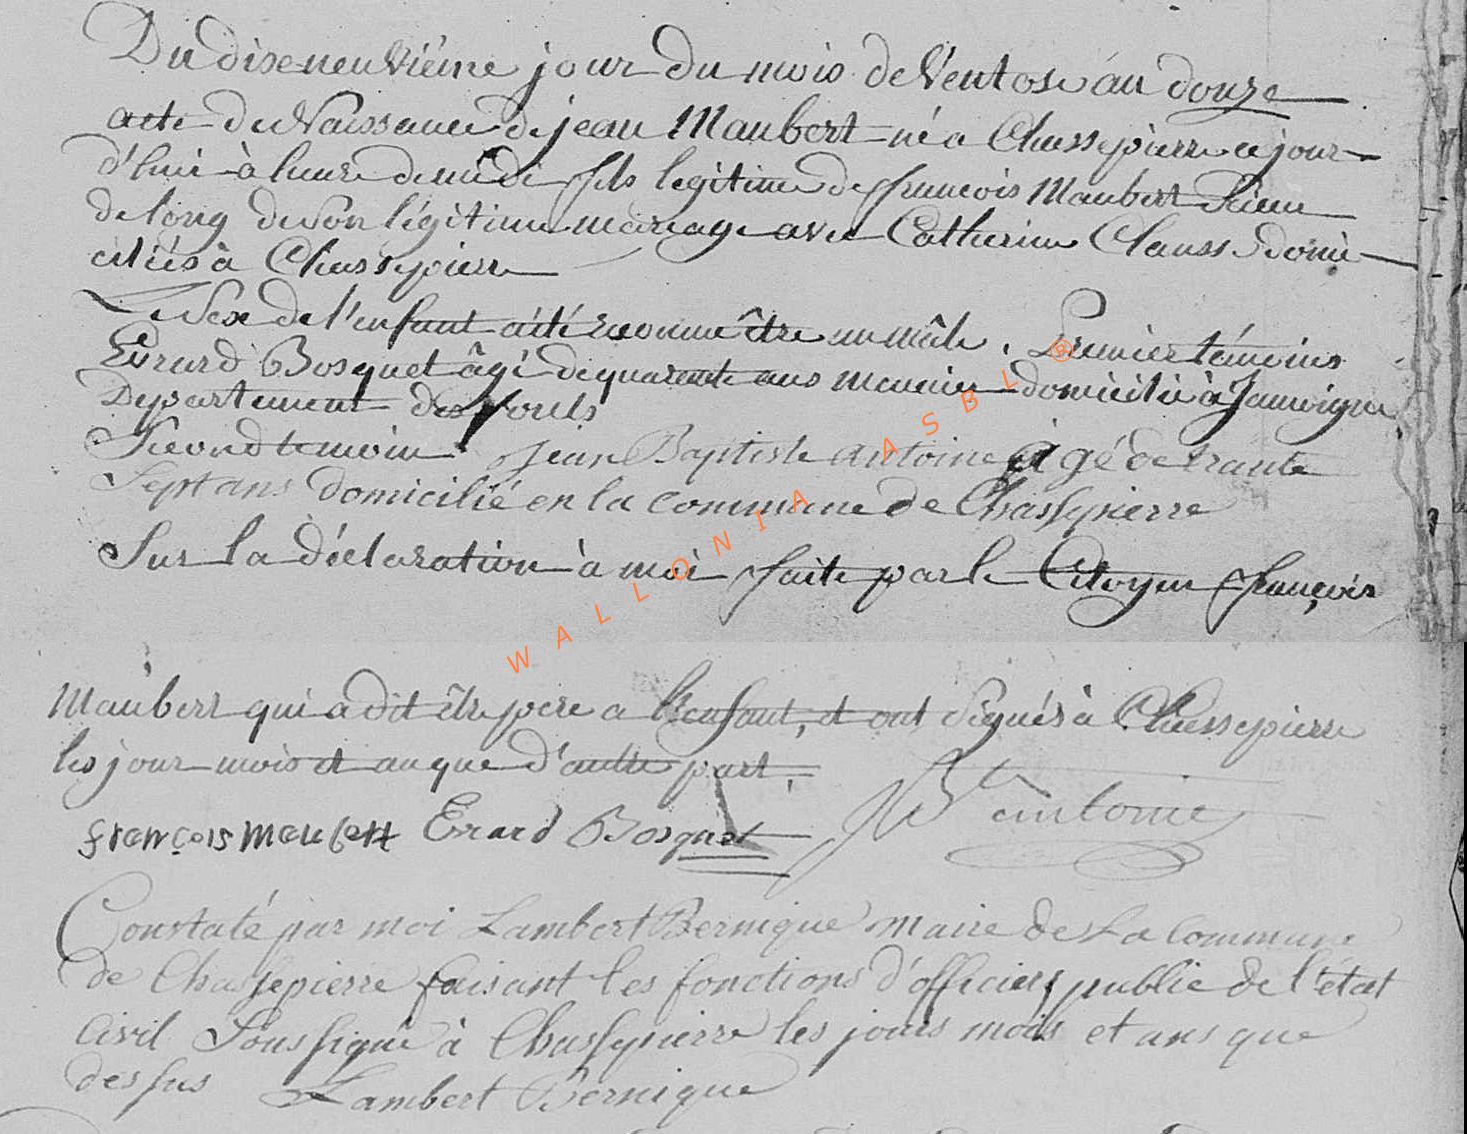 Du dixeneuvième jour du mois de Ventose an douze
acte de Naissance de jean Maubert né a Chassepierre cejour-
d'huie à heure de midi fils legitime de françois Maubert Sieur
de long de son légitime mariage avec Catherine Clauss domi-
ciliés à Chassepierre
Le Sexe de l'enfant a été reconnue être un mâle. Premier témoins
Evrard Bosquet âgé de quarente ans meunier domicilié à Jamoigne
Departement des forets
Second temoin Jean Baptiste antoine âgé de trante
Sept ans domicilié en la commune de Chassepierre
Sur la déclaration à moi faite par le Citoyen françois
Maubert qui a dit être pere a l'enfant, et ont Signés à Chassepierre
les jour mois et an que d'autre part.
françois maubert Erard Bosquet JBte antoine
Constaté par moi Lambert Bernique maire de La commune
de Chassepierre faisant les fonctions d'officier public de l'état
civil Soussigné à Chassepierre les jours mois et ans que
dessus Lambert Bernique
WALLONIA ASBL ®